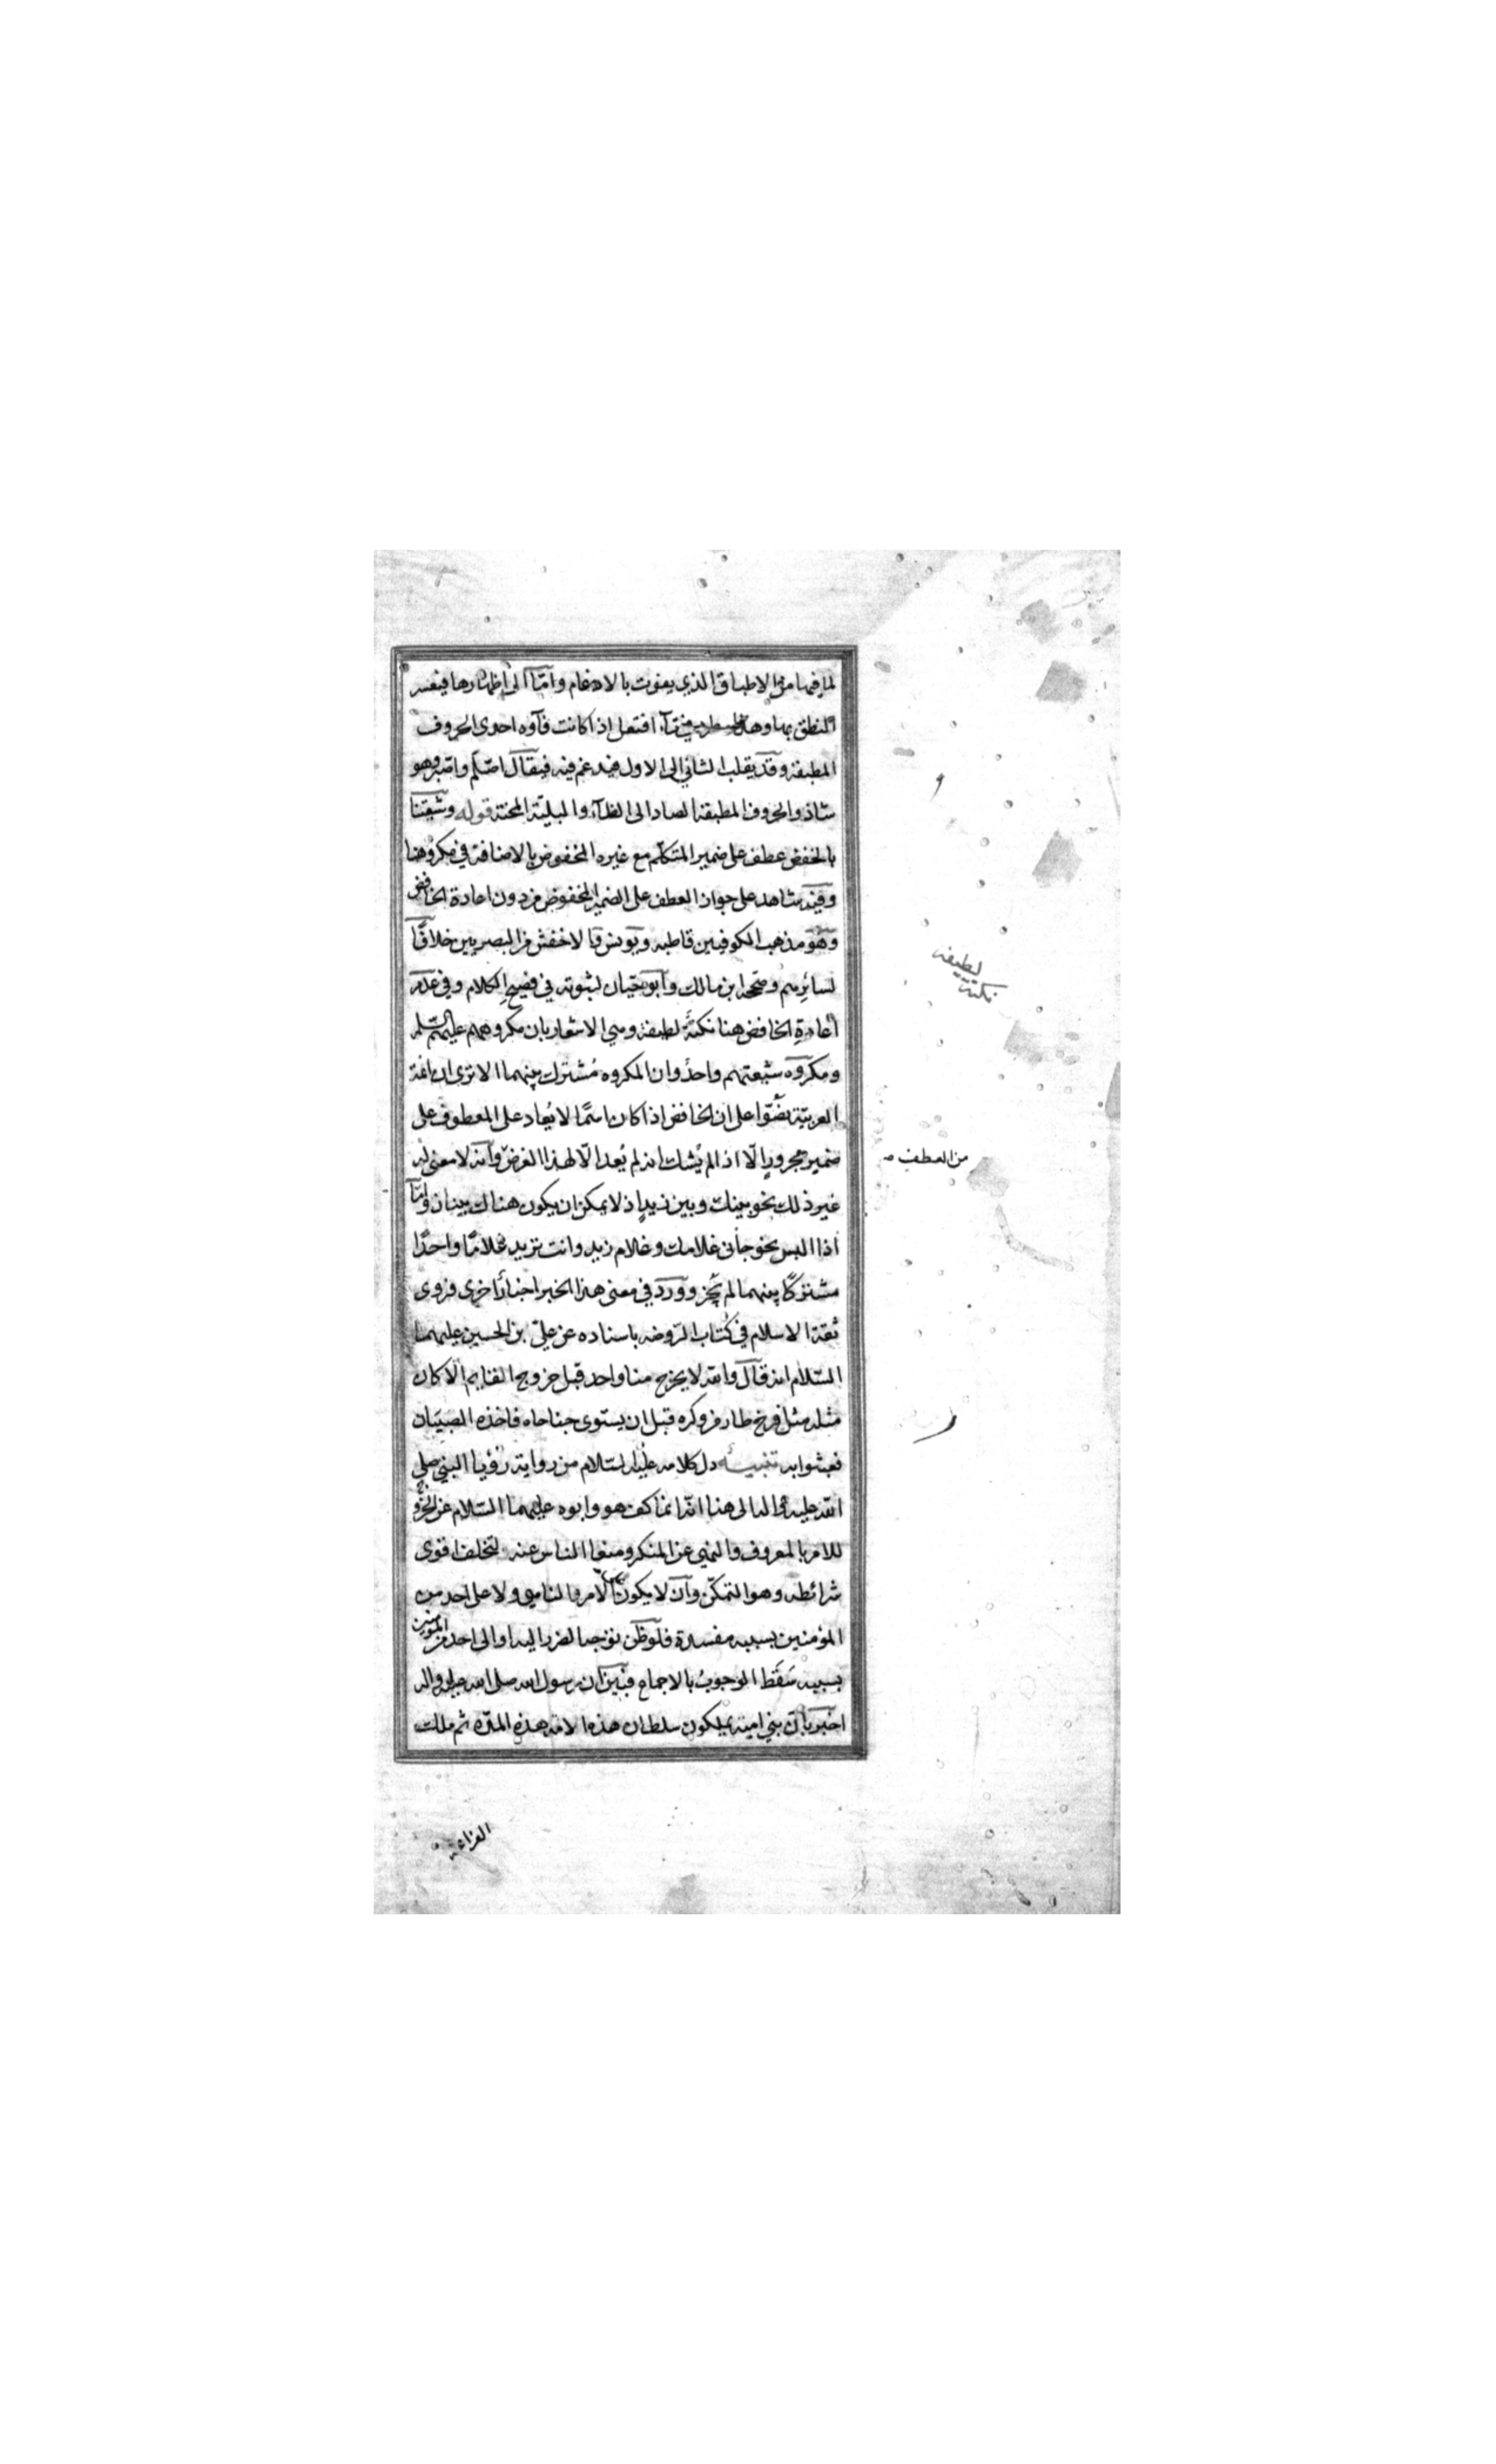 لما فيها من الاطباق الذي يفوت بالادغام وامّا الى اظهارها فيعسر
النطق بها وهذا مطرد في تآء افتعل اذا كانت فآوه احدى الحروف
المطبقة وقد يقلب الثاني الى الاول فيدغم فيه فيقال اصّلم واصّبر وهو
شاذ والحروف المطبقة الصاد الى الظآء والبليّة المحنة قوله وشيعتنا
بالخفض عطف على ضمير المتكلّم مع غيره المخفوض بالاضافة في مكروهنا
وفيه شاهد على جواز العطف على الضمير المخفوض من دون اعادة الخافض
وهو مذهب الكوفيين قاطبه ويونس والاخفش من البصريين خلافًا
لسائرهم وصحّحه ابن مالك وابو حيّان لثبوته في فصيح الكلام وفي عدم
اعادة الخافض هنا نكتة لطيفة وهي الاشعار بان مكروههم عليهم السّلم
ومكروه شيعتهم واحدٌ وان المكروه مُشترك بينهما الا ترى ان ائمة
العربيّة نصّوا على ان الخافض اذا كان اسمًا لا يُعاد على المعطوف على
ضمير مجرورٍ الّا اذا لم يُشك انه لم يُعد الّا لهذا الغرض وانه لا معنى له
غير ذلك نحو بينك وبين زيدٍ اذ لا يمكن ان يكون هناك بينان وامّا
اذا البس نحو جآنى غلامك وغلام زيد وانت تريد غلامًا واحدًا
مشتركًا بينهما لم يجُز وورد في معنى هذا الخبر اخبارٌ اخرى فروى
ثقة الاسلام في كتاب الرّوضه باسناده عن علىّ بن الحسين عليهما
السّلام انه قال والله لا يخرج منا واحد قبل خروج القايم الّا كان
مثله مثل فرخ طار من وكره قبل ان يستوى جناحاه فاخذه الصبيان
فعبثوا به تنبيه دل كلامه عليه السّلام من رواية رؤيا النبي صلى
الله عليه واله الى هنا انه انما كف هو وابوه عليهما السّلام عن الخروج
للامر بالمعروف والنهي عن المنكر ومنعا الناس عنه لتخلف اقوى
شرائطه وهو التمكّن وان لا يكون على الامر والناهي ولا على احد من
المؤمنين بسببه مفسدة فلو ظن توجه الضرر اليه او الى احد من المؤمنين
بسببه سَقَط الوجوبُ بالاجماع فبيّن ان رسول الله صلى الله عليه واله
اخبر بان بني امية يملكون سلطان هذه الامة هذه المدّه ثم ملك
نكته لطيفه
من العطف